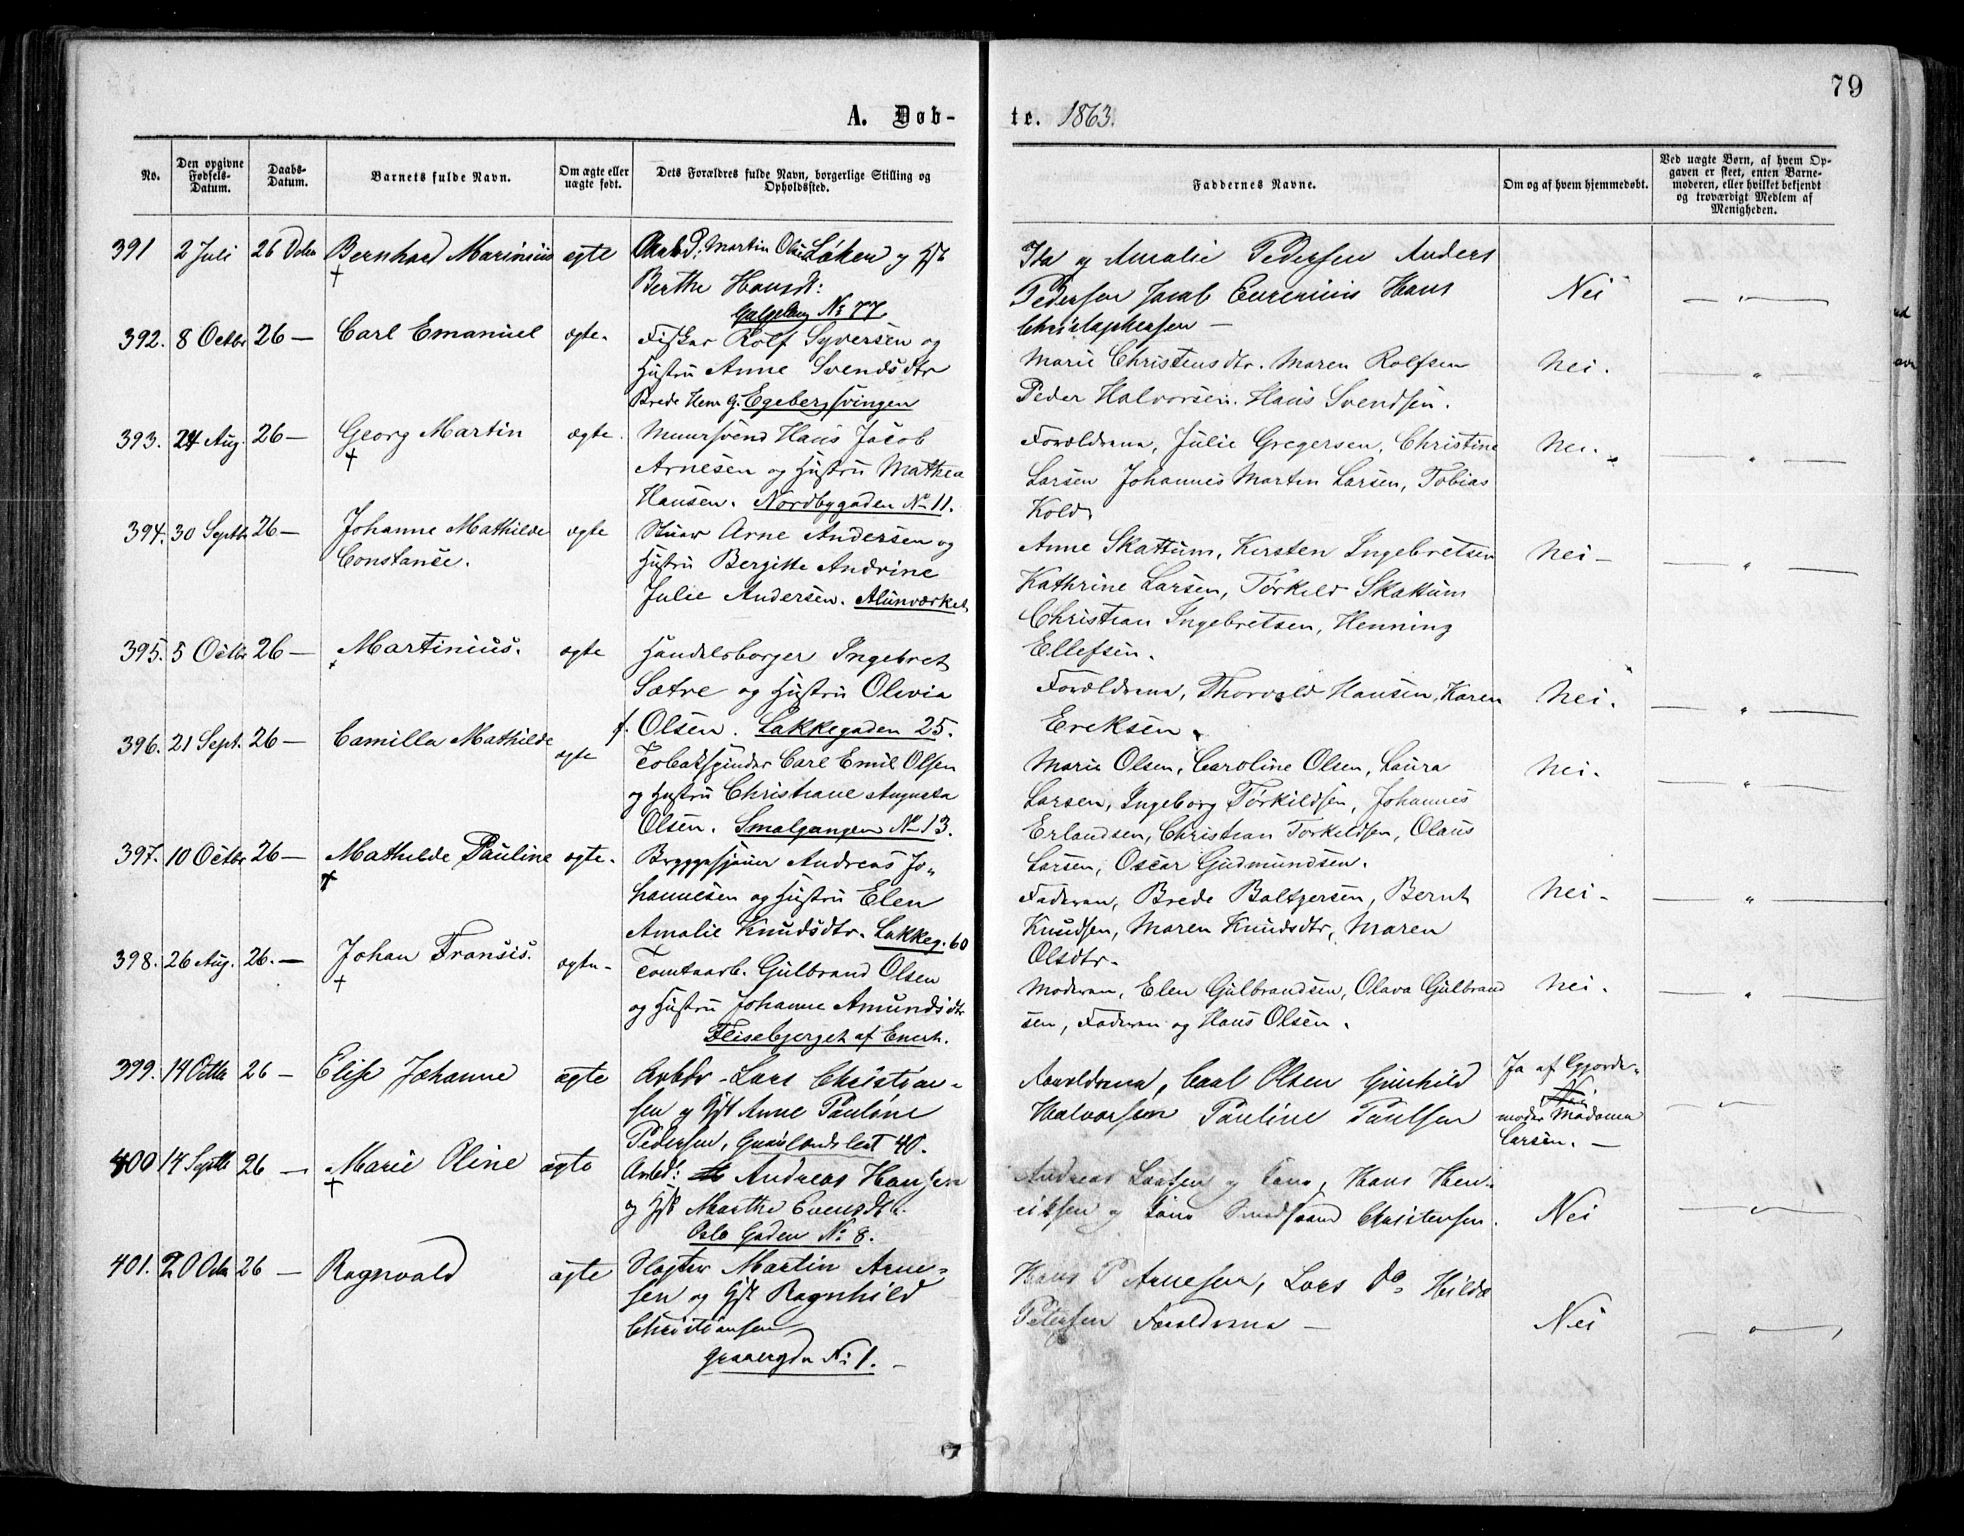 79
A. Døb-
te. 1863.
No.
Den opgivne
Fødsels-
Datum.
Daabs-
Datum.
Barnets fulde Navn.
Om ægte eller
uægte født.
Dets Forældres fulde Navn, borgerlige Stilling og
Opholdssted.
Faddernes Navne.
Om og af hvem hjemmedøbt.
Ved uægte Børn, af hvem Op-
gaven er skeet, enten Barne-
moderen, eller hvilket bekjendt
og troværdigt Medlem af
Menigheden.
391 2 Juli 26 Octbr Bernhard Marinius ægte
Martin Olsen Løken og Hst
Berthe Hansdt:
No 77
Ida og Amalie Pedersen Anders
Pedersen Jacob Hans
Christophersen —
Nei
392. 8 Octbr 26 — Carl Emanuel ægte.
Fisker Rolf Syversen og
Hustru Anne Svendsdtr
Egebergsvingen
Marie Christensdtr. Maren Rolfsen
Peder Halvorsen. Hans Svendsen.
Nei.
393. 24 Aug. 26 — Georg Martin ægte.
Muursvend Hans Jacob
Arnesen og Hustru Mathea
Hansen. Nordbygaden No 11.
Forældrene, Julie Gregersen, Christine
Larsen Johannes Martin Larsen, Tobias
Kold.
Nei.
394. 30 Septbr 26 — Johanne Mathilde
Constanse.
ægte
Stuer Arne Andersen og
Hustru Bergitte Andrine
Julie Andersen. Alunværket
Anne Skattum, Kersten Ingebretsen
Kathrine Larsen, Torkild Skattum
Christian Ingebretsen, Henning
Ellefsen.
Nei —
395. 5 Octbr 26 — Martinius. ægte
Handelsborger Ingebret
Sætre og Hustru Olevia
f. Olsen. Lakkegaden 25.
Forældrene, Thorvald Hansen, Karen
Ereksen.
Nei.
396. 21 Sept. 26 — Camilla Mathilde ægte
Tobakspinder Carl Emil Olsen
og Hustru Christiane Augusta
Olsen. Smalgangen No 13.
Marie Olsen, Caroline Olsen, Laura
Larsen, Ingeborg Torkildsen, Johannes
Erlandsen, Christian Torkildsen, Olaus
Larsen, Oscar Gudmundsen.
Nei.
397. 10 Octbr 26 — Mathilde Pauline ægte.
Bryggesjouer Andreas Jo-
hannesen og Hustru Elen
Amalie Knudsdtr. Lakkeg. 60
Faderen, Brede Baltzersen, Bernt
Knudsen, Maren Knudsdtr, Maren
Olsdtr.
Nei.
398. 26 Aug. 26. — Johan Fransis. ægte.
Tomtearb. Gulbrand Olsen
og Hustru Johanne Amundsdtr
Flisebjerget af Enerh.
Moderen, Elen Gulbrandsen, Olava Gulbrand
sen, Faderen og Hans Olsen.
Nei.
399. 14 Octbr 26 — Elise Johanne ægte
Arbdr Lars Christian-
sen og Hst Anne Pauline
Pedersen, Grønlandsleret 40.
Forældrene, Carl Olsen Gunhild
Halvorsen Pauline Paulsen
Ja af Gjorde-
moder Madame
Larsen. —
400 14 Septbr 26 — Marie Oline ægte
Arbd: Andreas Hansen
og Hst Marthe Evensdt:
Oslo Gaden No 8.
Andreas Larsen og Kone, Hans Hen-
riksen og Kone Christensen.
Nei
401. 20 Octbr 26 — Ragnvald ægte
Slagter Martin Arne-
sen og Hst Ragnhild
Christiansen
No 1. —
Hans P Arnesen, Lars Do Hilda
Petersen Forældrene —
Nei